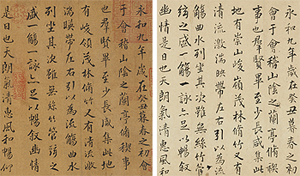 永和九年歲在癸丑暮春之初
會于會稽山陰之蘭亭脩稧事
也羣賢畢至少長咸集此
地有崇山峻領茂林脩竹又有清
流激湍映帶左右引以為流
觴曲水列坐其次雖無絲竹管
弦之盛一觴一詠亦足以暢敘
幽情是日也天朗氣清惠風和
永和九年歲在癸丑暮春之初會
于會稽山陰之蘭亭脩稧事
也羣賢畢至少長咸集此地
有峻領茂林脩竹又有清流激
湍映帶左右引以為流觴曲水
列坐其次雖無絲竹管弦之
盛一觴一詠亦足以暢敘幽情
是日也天朗氣清惠風和暢仰